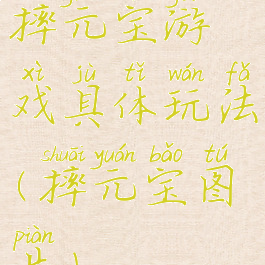 摔元宝游
xì jù tǐ wán fǎ
戏具体玩法
shuāi yuán bǎo tú
(摔元宝图
piàn
片)